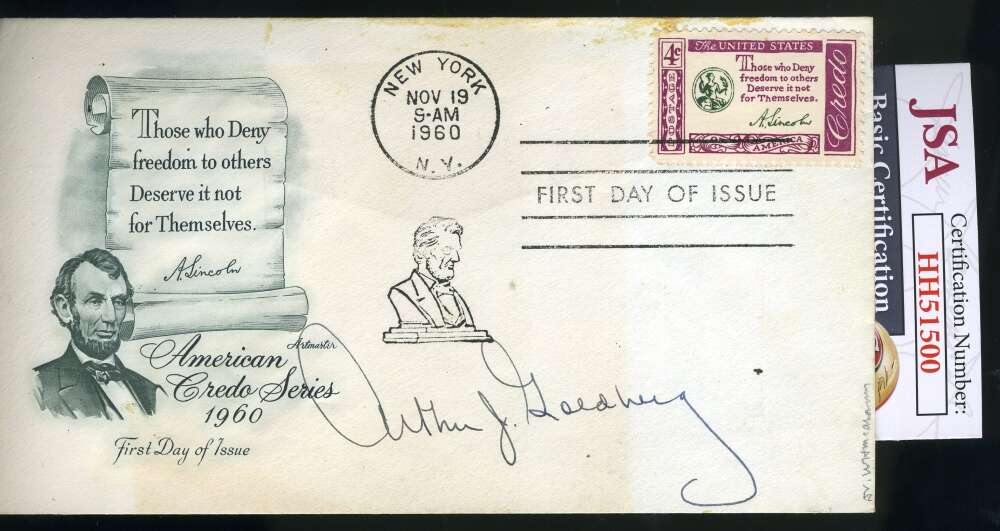 Those who Deny
freedom to others
Deserve it not
for Themselves.
A. Lincoln
Artmaster
American
Credo Series
1960
First Day of Issue
NEW YORK
NOV 19
9-AM
1960
N. Y.
FIRST DAY OF ISSUE
4¢
The UNITED STATES
Those who Deny
freedom to others
Deserve it not
for Themselves.
A. Lincoln
Credo
OF AMERICA
Arthur J. Goldberg
JSA
Basic Certification
Certification Number:
HH51500